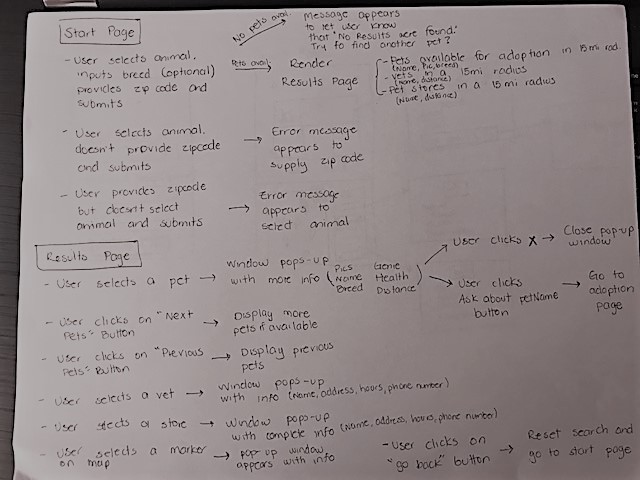 Start Page
- User selects animal,
inputs breed (optional)
provides zip code and
submits
No pets avail.
message appears
to let user know
that "No Results were found.
Try to find another pet?
Pets avail.
Render
Results Page
- Pets available for adoption in 15 mi rad.
(Name, Pic, breed)
- Vets in a 15mi radius
(name, distance)
- Pet stores in a 15 mi radius
(Name, distance)
- User selects animal,
doesn't provide zipcode
and submits
Error message
appears to
supply zip code
- User provides zipcode
but doesn't select
animal and submits
Error message
appears to
select animal
Results Page
- User selects a pet
Window pops-up
with more info
(Pics
Name
Breed
Health
Distance)
User clicks X
Close pop-up
window
User clicks
Ask about petName
button
Go to
adoption
page
- User clicks on "Next
Pets" Button
Display more
pets if available
- User clicks on "Previous
Pets" Button
Display previous
pets
- User selects a vet
Window pops-up
with info (Name, address, hours, phone number)
- User selects a store
Window pops-up
with complete info (Name, address, hours, phone number)
- User selects a marker
on map
pop-up window
appears with info
- User clicks on
"go back" button
Reset search and
go to start page